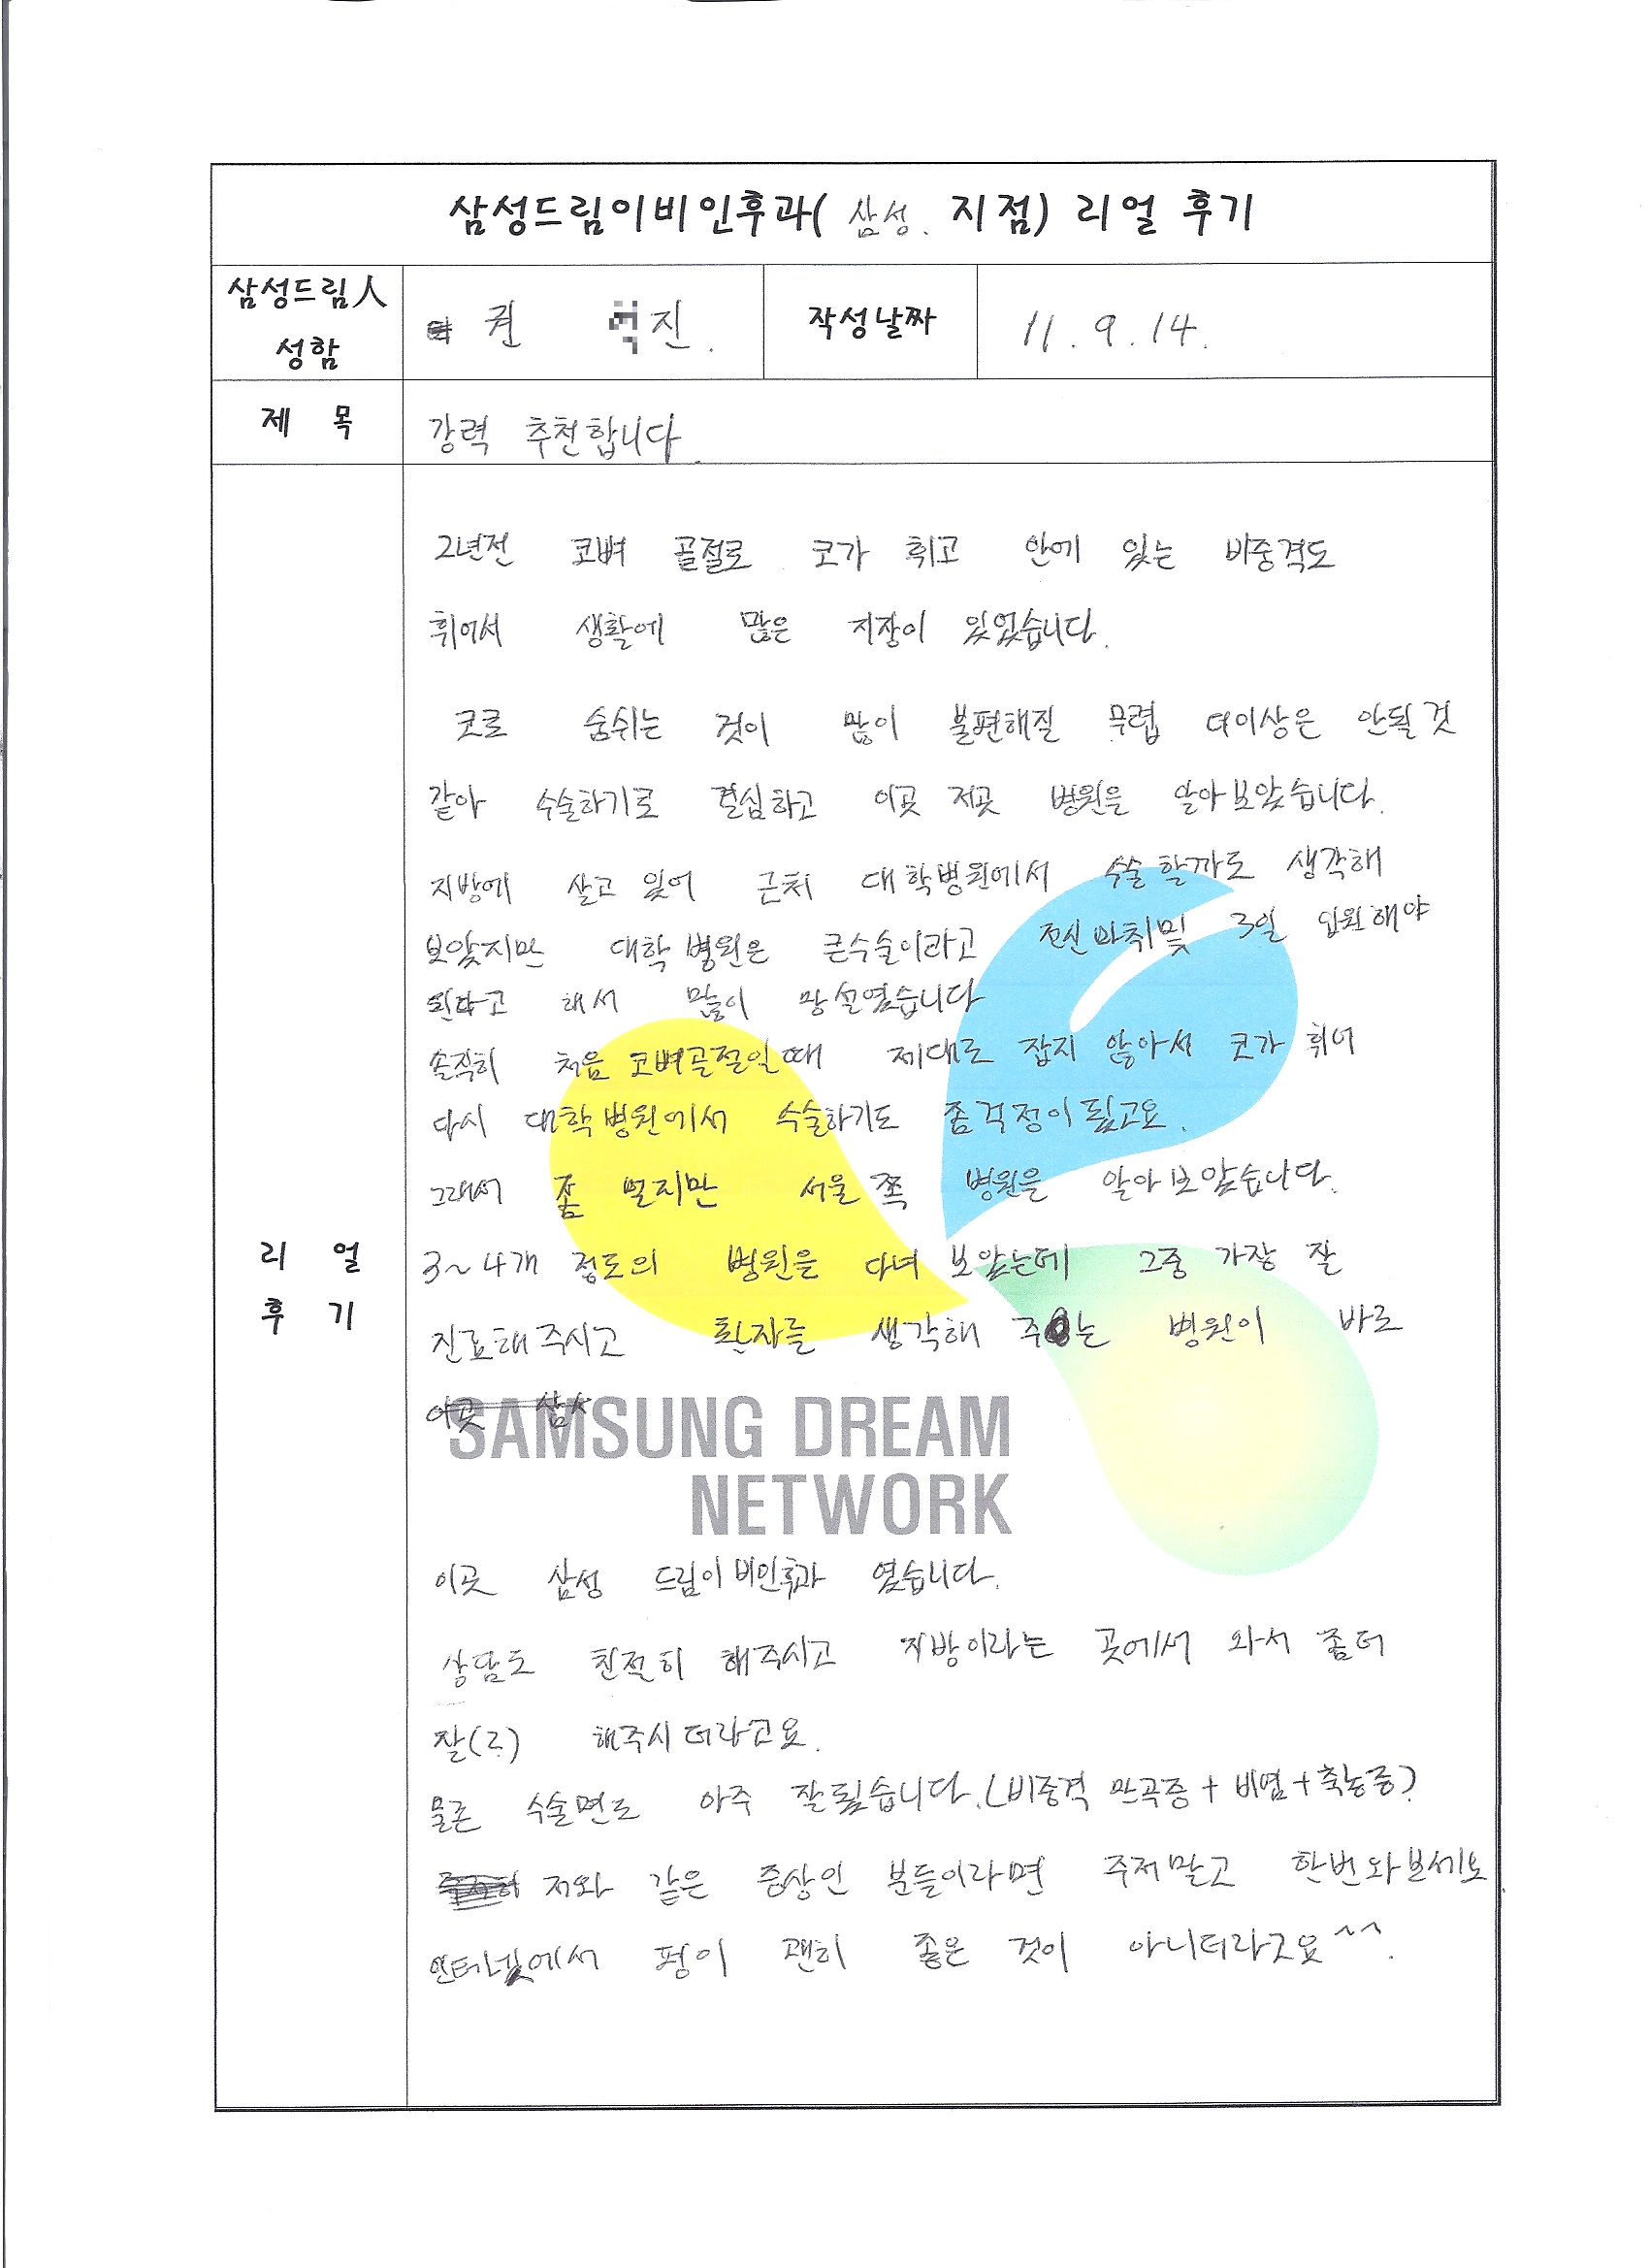 삼성드림이비인후과( 삼성. 지점) 리얼 후기
삼성드림人
성함
권 진.
작성날짜
11. 9. 14.
제 목
강력 추천합니다.
리 얼
후 기
2년전 코뼈 골절로 코가 휘고 안에 있는 비중격도
휘어서 생활에 많은 지장이 있었습니다.
코로 숨쉬는 것이 많이 불편해질 무렵 더이상은 안될것
같아 수술하기로 결심하고 이곳 저곳 병원을 알아보았습니다.
지방에 살고 있어 근처 대학병원에서 수술 할까도 생각해
보았지만 대학병원은 큰수술이라고 전신마취및 3일 입원해야
된다고 해서 많이 망설였습니다
솔직히 처음 코뼈골절일때 제대로 잡지 않아서 코가 휘어
다시 대학병원에서 수술하기도 좀 걱정이 됬고요.
그래서 좀 멀지만 서울쪽 병원을 알아보았습니다.
3~4개 정도의 병원을 다녀 보았는데 그중 가장 잘
진료해주시고 환자를 생각해 주는 병원이 바로
이곳 삼
SAMSUNG DREAM
NETWORK
이곳 삼성 드림이비인후과 였습니다.
상담도 친절히 해주시고 지방이라는 곳에서 와서 좀더
잘(?) 해주시더라고요.
물론 수술면도 아주 잘됬습니다.(비중격 만곡증+비염+축농증)
저와 같은 증상인 분들이라면 주저말고 한번와보세요.
인터넷에서 평이 괜히 좋은 것이 아니더라구요^^.